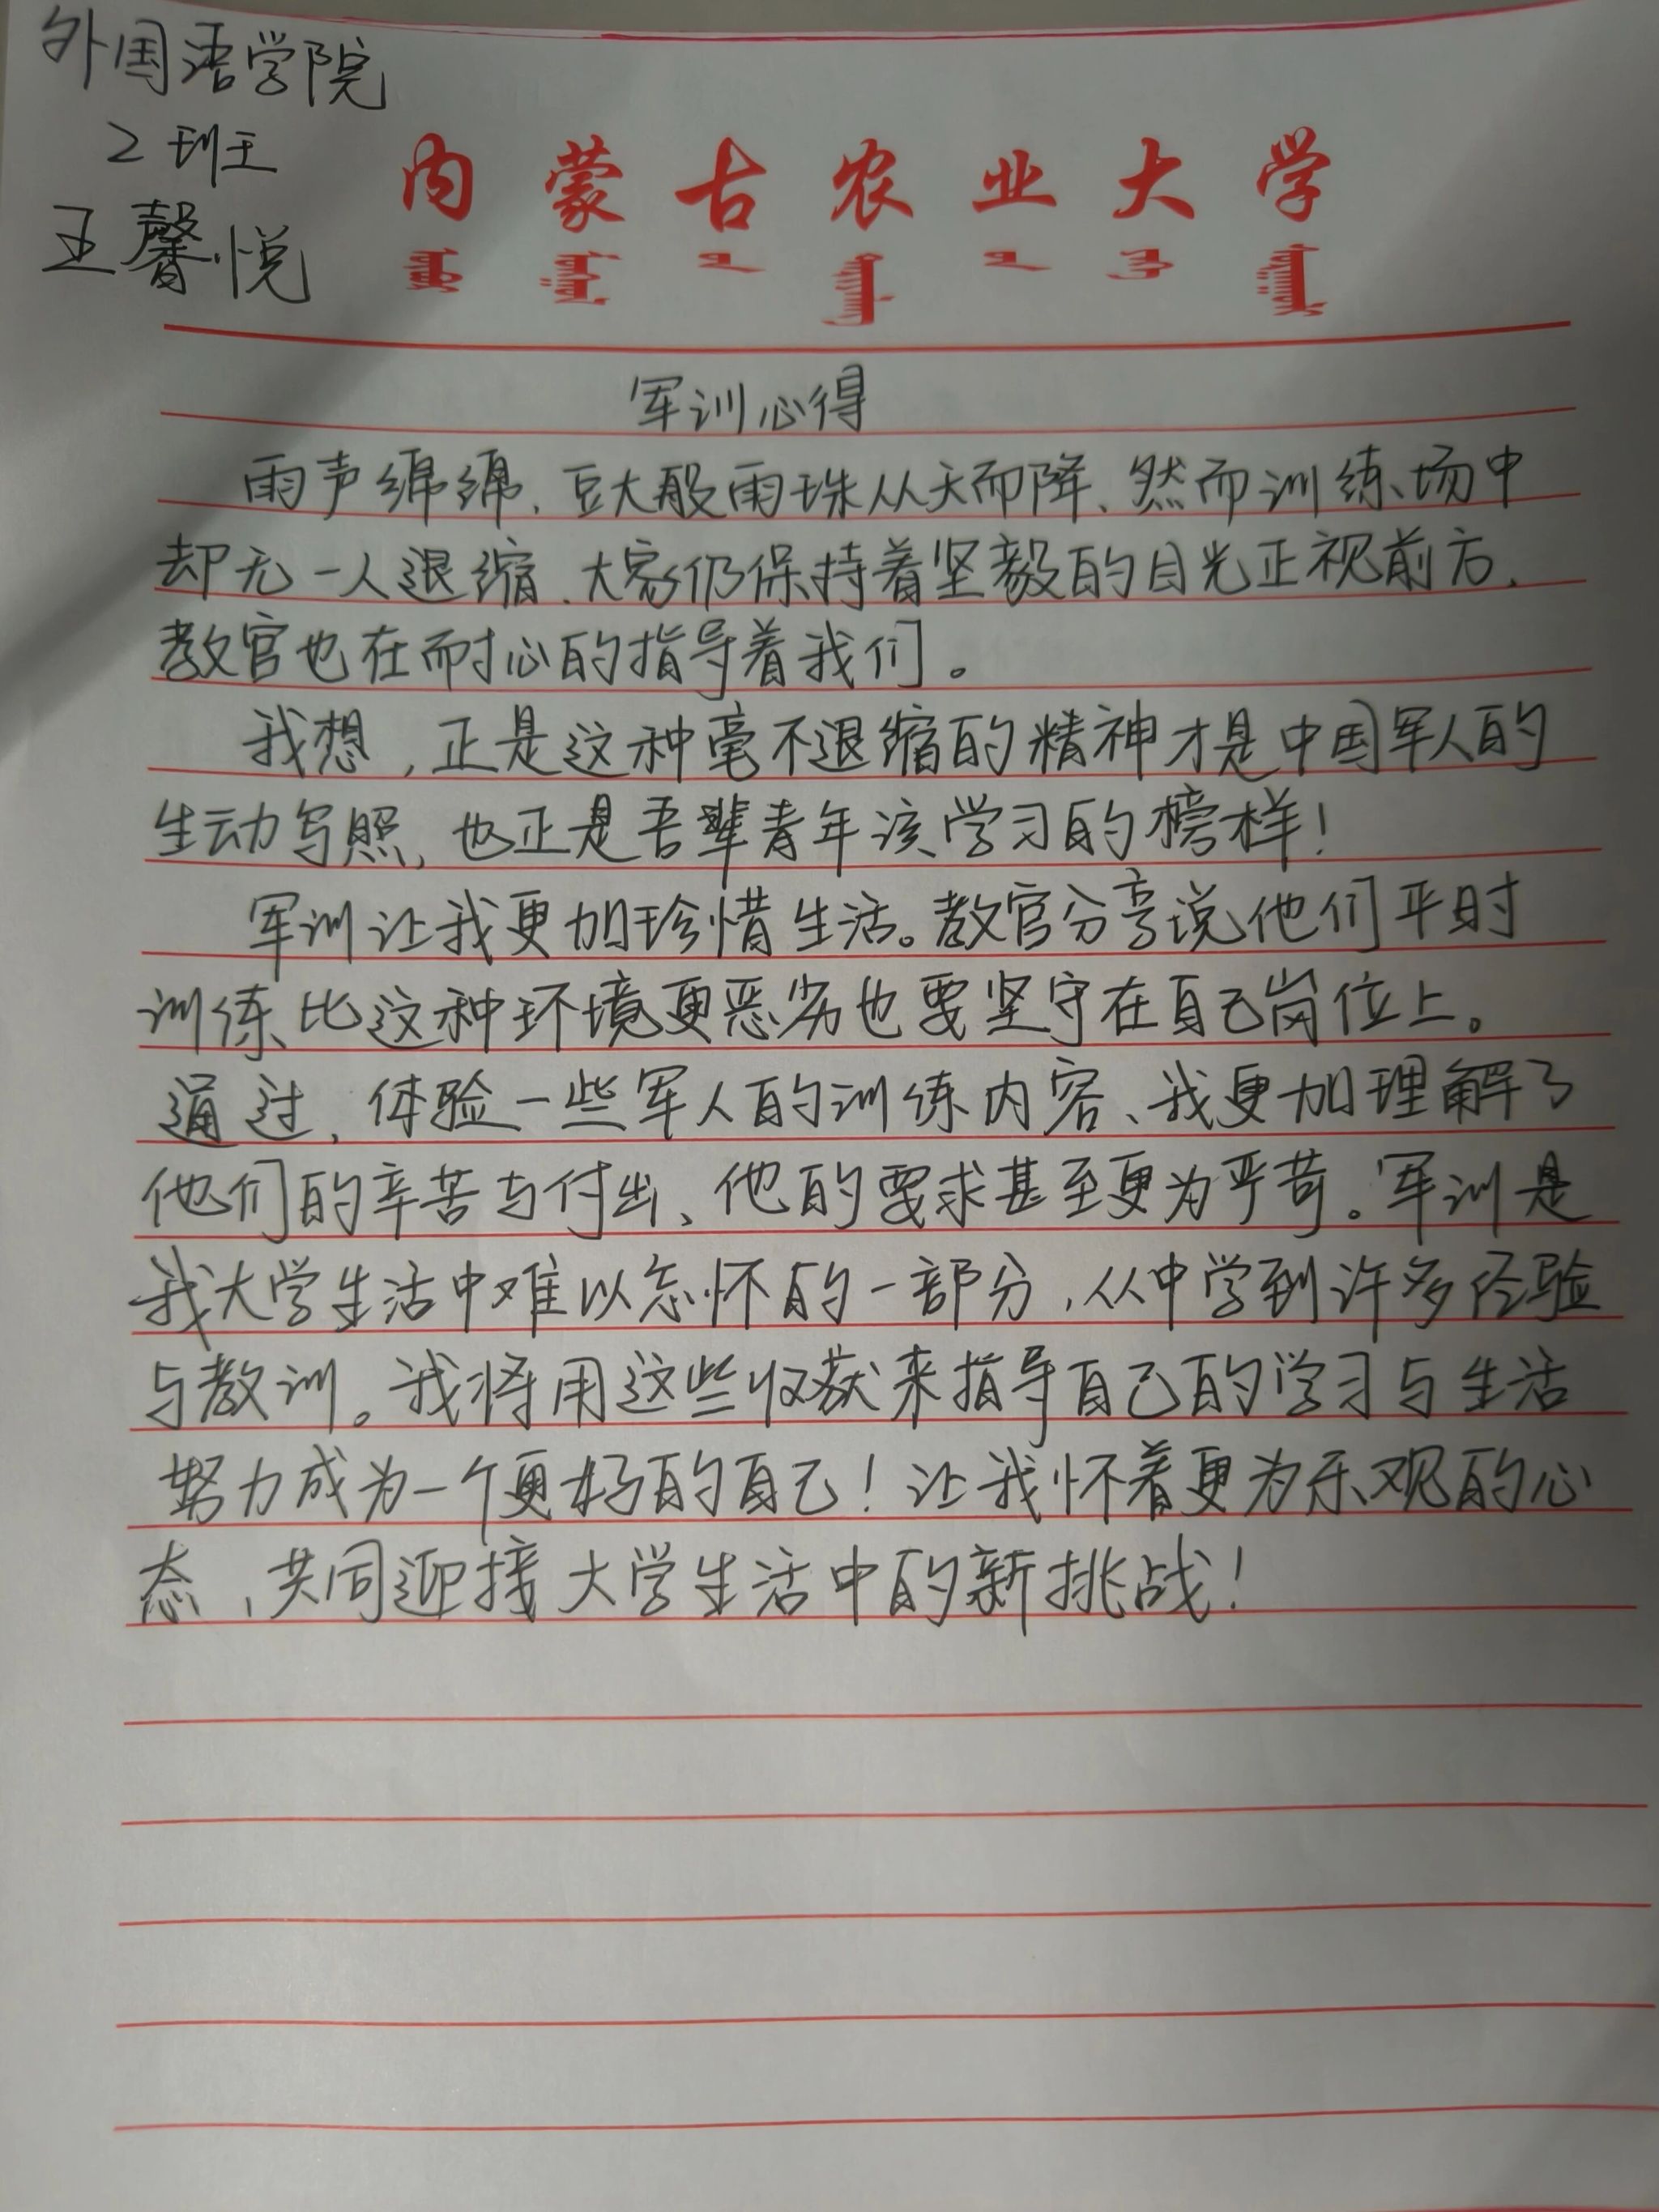 外国语学院
2班
王馨悦
内蒙古农业大学
军训心得
雨声绵绵，豆大般雨珠从天而降、然而训练场中
却无一人退缩、大家仍保持着坚毅的目光正视前方、
教官也在耐心的指导着我们。
我想，正是这种毫不退缩的精神才是中国军人的
生动写照，也正是吾辈青年该学习的榜样！
军训让我更加珍惜生活。教官分享说他们平时
训练比这种环境更恶劣也要坚守在自己岗位上。
通过，体验一些军人的训练内容、我更加理解了
他们的辛苦与付出、他的要求甚至更为严苛。军训是
我大学生活中难以忘怀的一部分，从中学到许多经验
与教训。我将用这些收获来指导自己的学习与生活
努力成为一个更好的自己！让我怀着更为乐观的心
态，共同迎接大学生活中的新挑战！